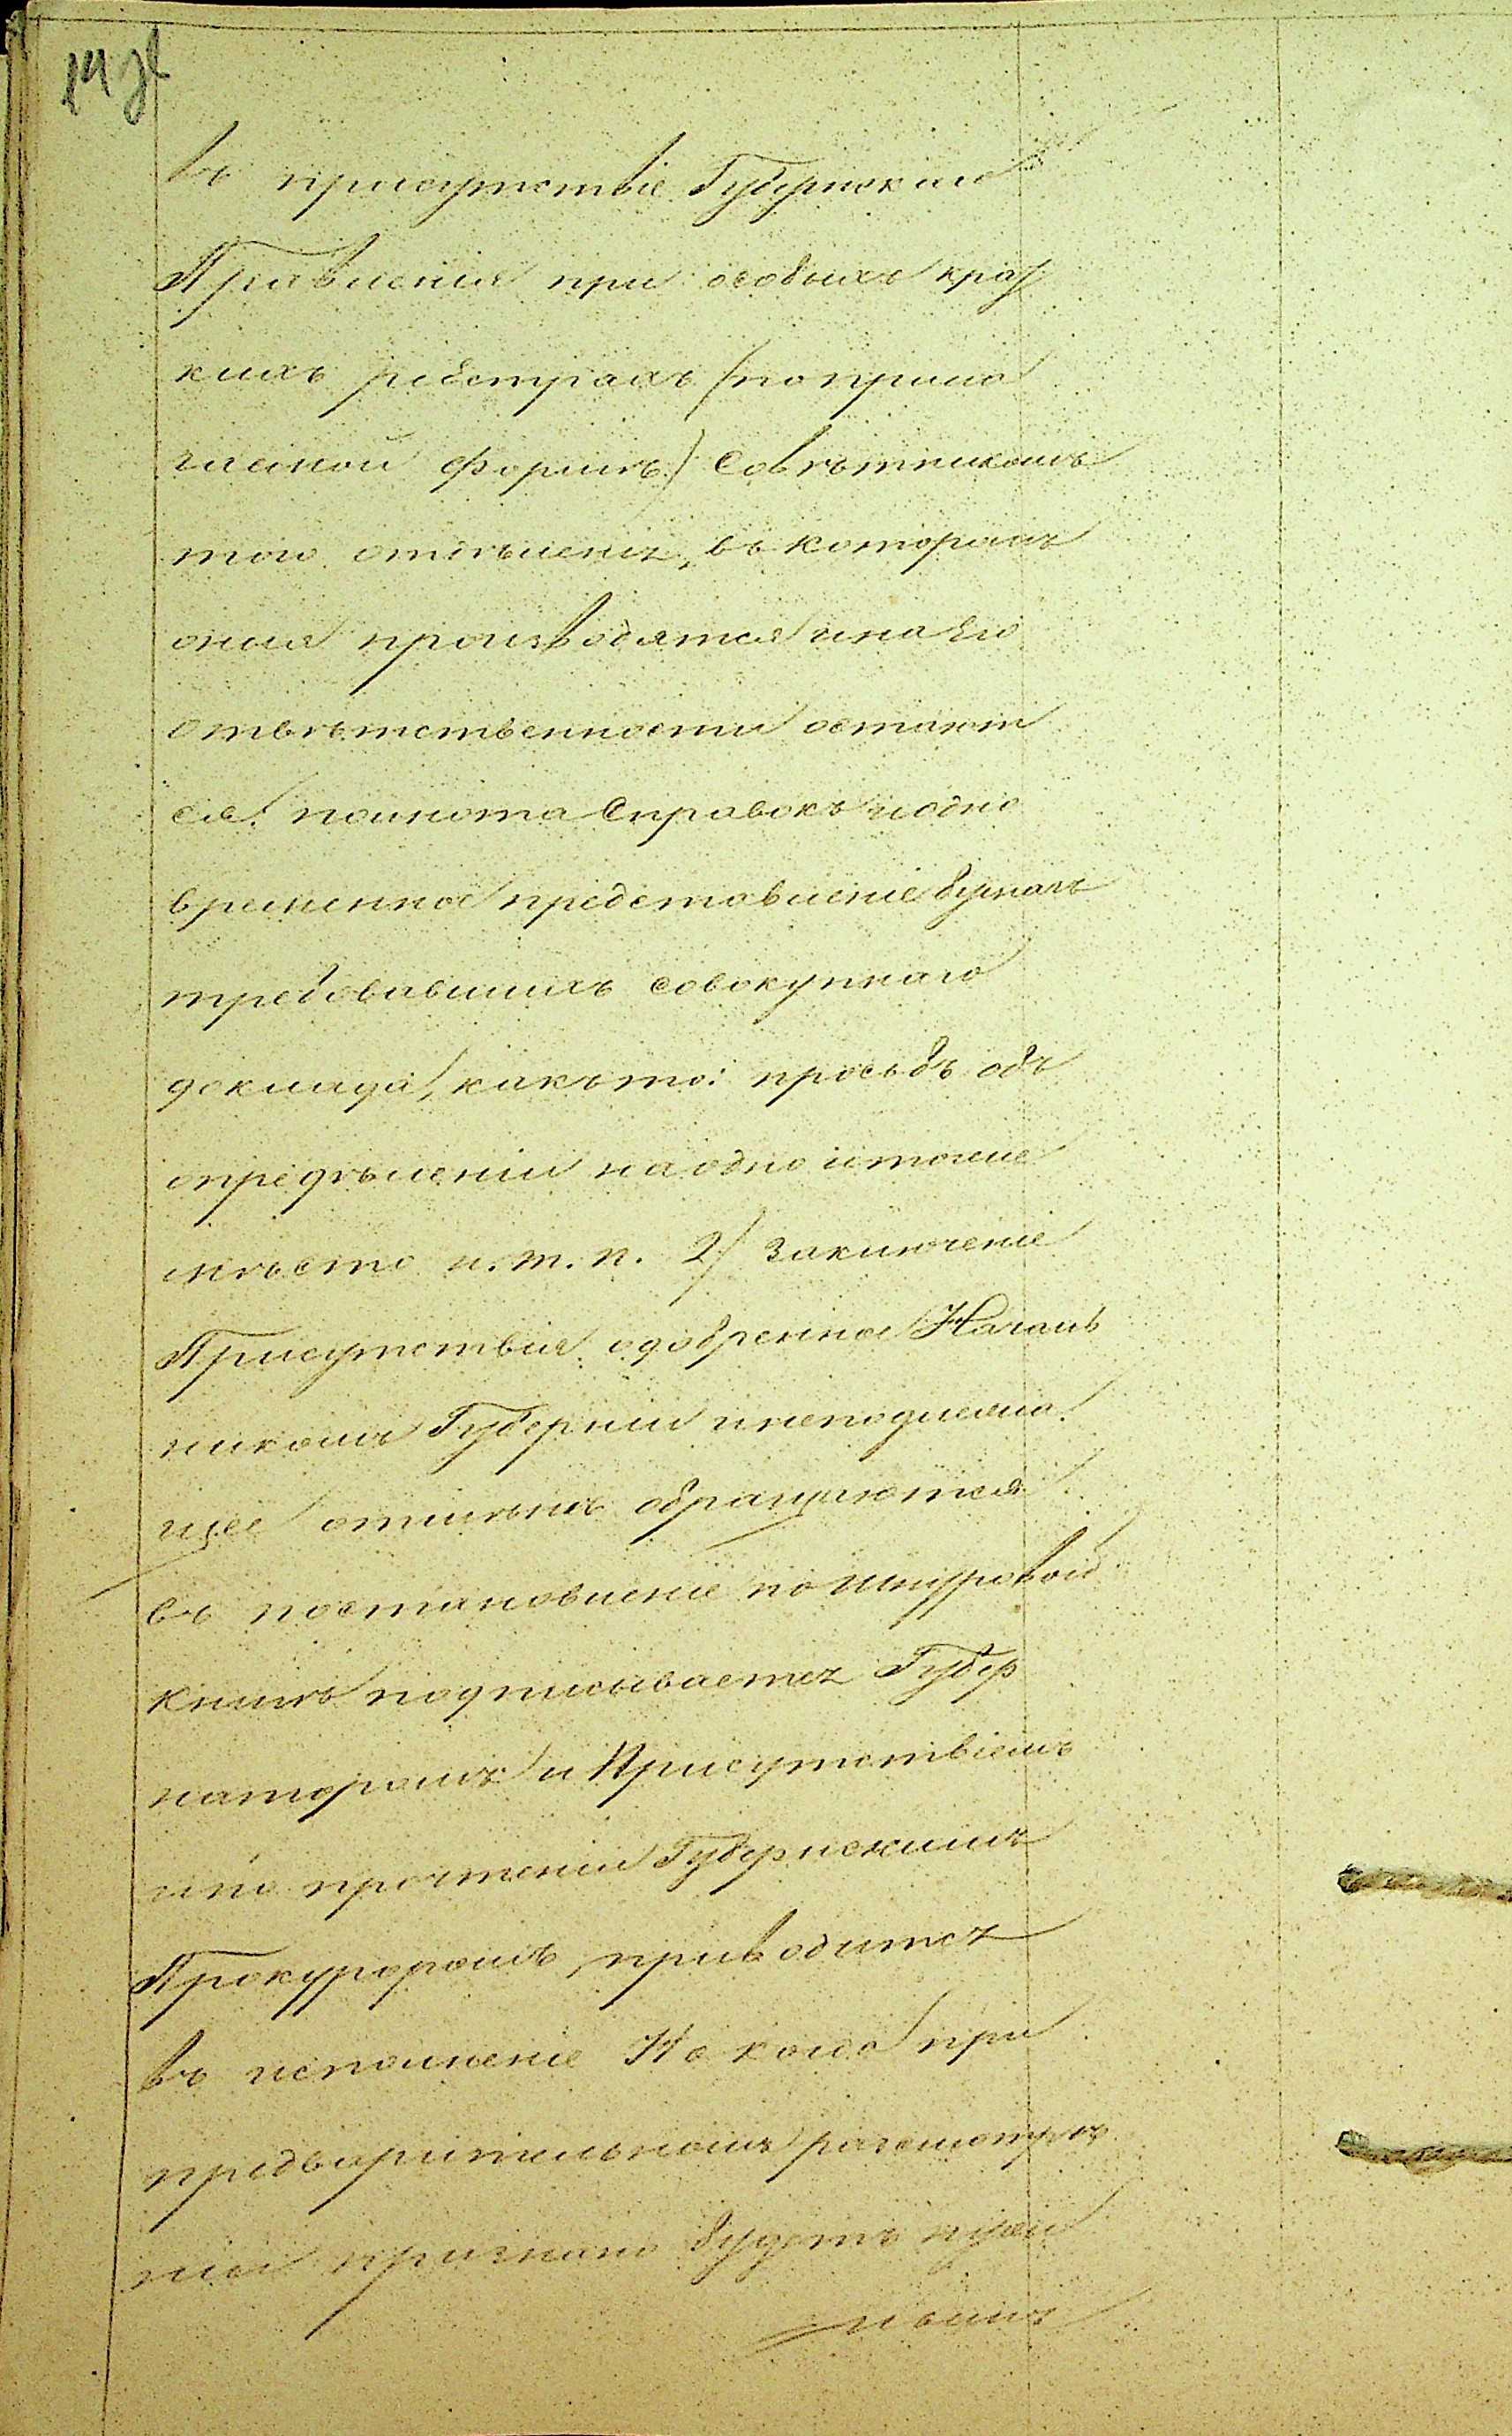 въ присутствіе Губернскаго
Правленія при особыхъ крат
кихъ реестрахъ (по прила
гаемой формѣ) Совѣтникомъ
того отдѣленія, въ которомъ
оныя производятся и на его
отвѣтственности остают
ся: полнота Справокъ и одно
временное представленіе бумагъ
требовавшихъ совокупнаго
доклада, какъ то: просьбъ объ
опредѣленіи на одно и тоже
мѣсто и. т. п. 2) Заключеніе
Присутствія одобренное Началь
никомъ Губерніи и неподлежа
щее отмѣнѣ обращаются
въ постановленіе по шнуровой
книгѣ подписывается Губер
наторомъ и Присутствіемъ
и по прочтеніи Губернскимъ
Прокуроромъ, приводится
въ исполненіе Но когда при
предварительномъ разсмотрѣ
ніи признано будетъ нуж
нымъ